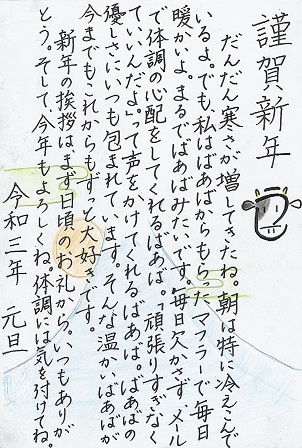 謹賀新年
だんだん寒さが増してきたね。朝は特に冷えこんで
いるよ。でも、私はばあばからもらったマフラーで毎日
暖かいよ。まるでばあばみたいです。毎日欠かさずメール
で体調の心配をしてくれるばあば。頑張りすぎなく
ていいんだよ」って声をかけてくれるばあば。ばあばの
優しさにいつも包まれています。そんな温かいばあばが
今までもこれからもずっと大好きです。
新年の挨拶はまず日頃のお礼から。いつもありが
とう。そして、今年もよろしくね。体調には気を付けてね。
令和三年 元旦